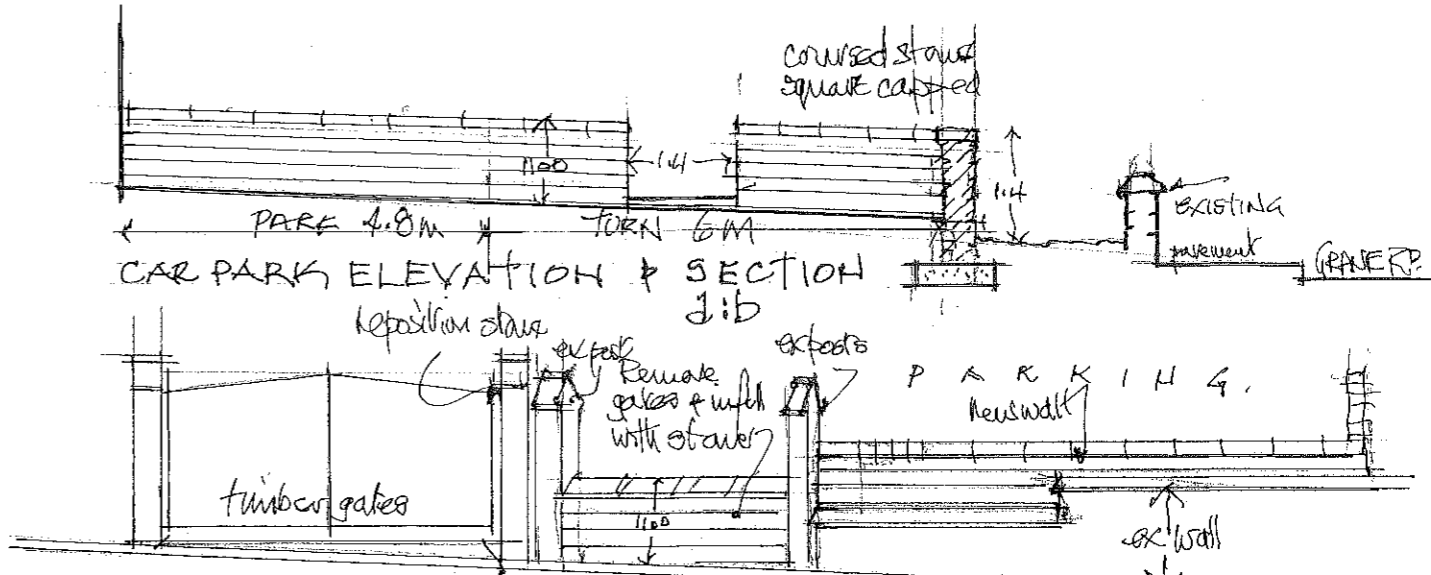 coursed stone
square capped
1100
1.4
1.4
EXISTING
PARK 4.8M
TURN 6M
pavement
GRANE RD.
CAR PARK ELEVATION & SECTION
reposition stone
ex posts
Remove
gates & infill
with stone
ex posts
PARKING.
new wall
timber gates
1100
ex wall